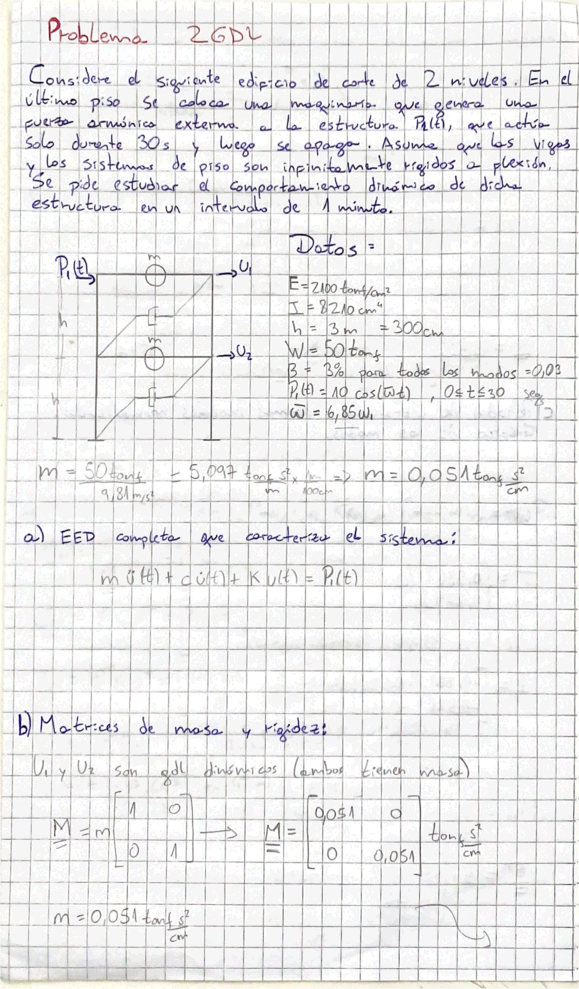 Problema 2GDL
Considere el siguiente edificio de corte de 2 niveles. En el
último piso se coloca una maquinaria que genera una
fuerza armónica externa a la estructura P₁(t), que actúa
solo durante 30s y luego se apaga. Asuma que las vigas
y los sistemas de piso son infinitamente rígidos a flexión.
Se pide estudiar el comportamiento dinámico de dicha
estructura en un intervalo de 1 minuto.
Datos:
P₁(t) m U₁
E = 2100 tonf/cm²
I = 8210 cm⁴
h h = 3m = 300cm
m U₂ W = 50 tonf
β = 3% para todos los modos = 0,03
P₁(t) = 10 cos(ω̅t) , 0≤t≤30 seg
h ω̅ = 6,85ω₁
m = 50 tonf / 9,81 m/s² = 5,097 tonf s²/m × 1m/100cm => m = 0,051 tonf s²/cm
a) EED completa que caracteriza el sistema:
m ü(t) + c u̇(t) + K u(t) = P₁(t)
b) Matrices de masa y rigidez:
U₁ y U₂ son gdl dinámicos (ambos tienen masa)
M = m [1 0 → M = [0,051 0
0 1] 0 0,051] tonf s²/cm
m = 0,051 tonf s²/cm